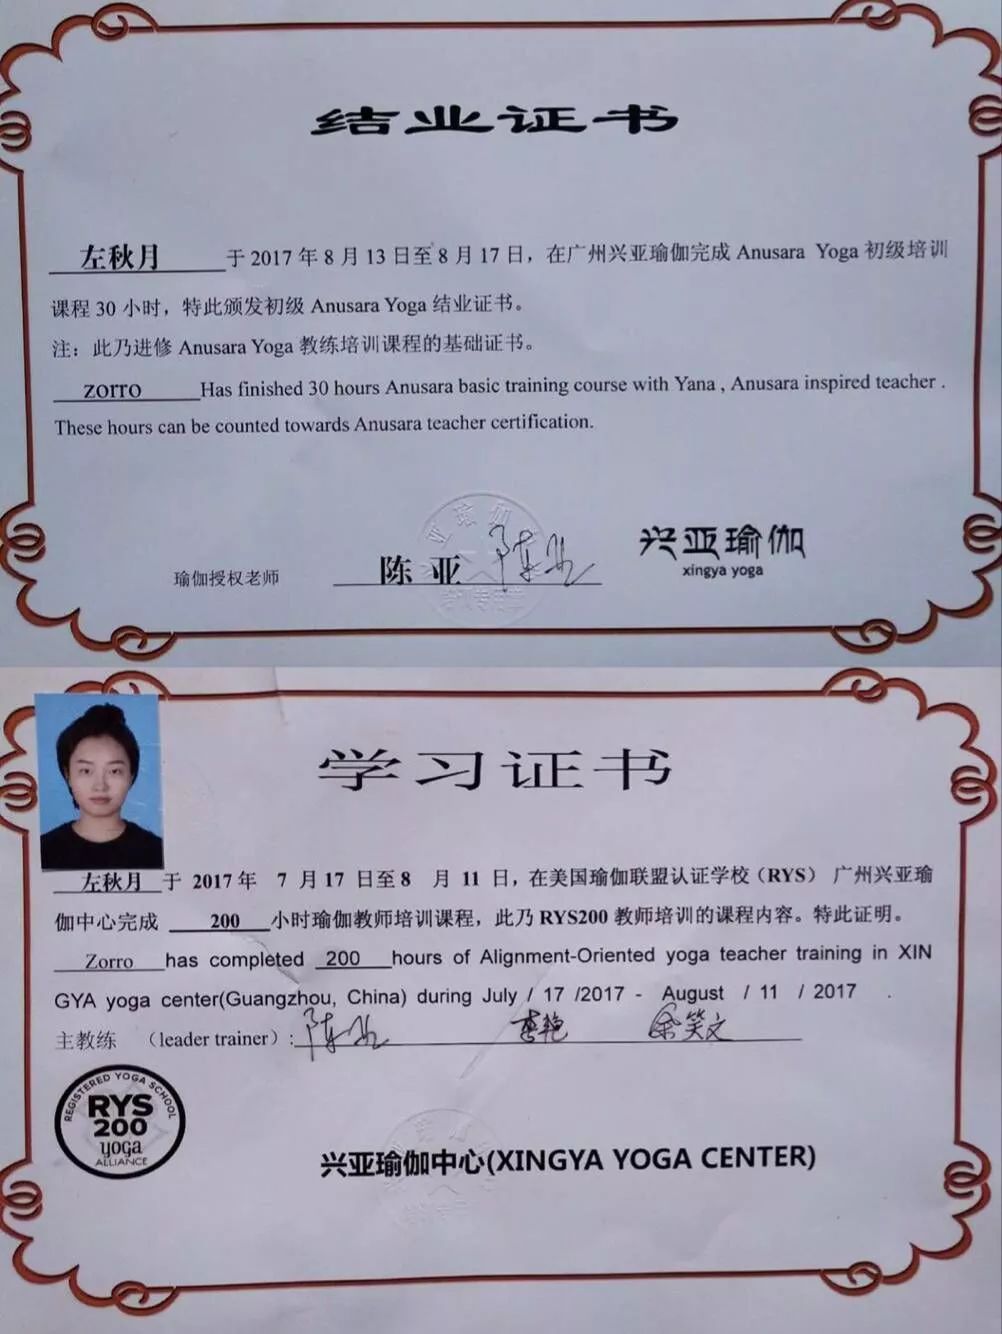 结业证书
左秋月 于 2017 年 8 月 13 日至 8 月 17 日，在广州兴亚瑜伽完成 Anusara Yoga 初级培训
课程 30 小时，特此颁发初级 Anusara Yoga 结业证书。
注：此乃进修 Anusara Yoga 教练培训课程的基础证书。
zorro Has finished 30 hours Anusara basic training course with Yana , Anusara inspired teacher .
These hours can be counted towards Anusara teacher certification.
瑜伽授权老师 陈 亚 陈亚
兴亚瑜伽
xingya yoga
学习证书
左秋月 于 2017 年 7 月 17 日至 8 月 11 日，在美国瑜伽联盟认证学校（RYS） 广州兴亚瑜
伽中心完成 200 小时瑜伽教师培训课程，此乃 RYS200 教师培训的课程内容。特此证明。
Zorro has completed 200 hours of Alignment-Oriented yoga teacher training in XIN
GYA yoga center(Guangzhou, China) during July / 17 /2017 - August / 11 / 2017 .
主教练 （leader trainer）: 陈亚 李艳 余笑文
REGISTERED YOGA SCHOOL
RYS
200
yoga
ALLIANCE
兴亚瑜伽中心(XINGYA YOGA CENTER)